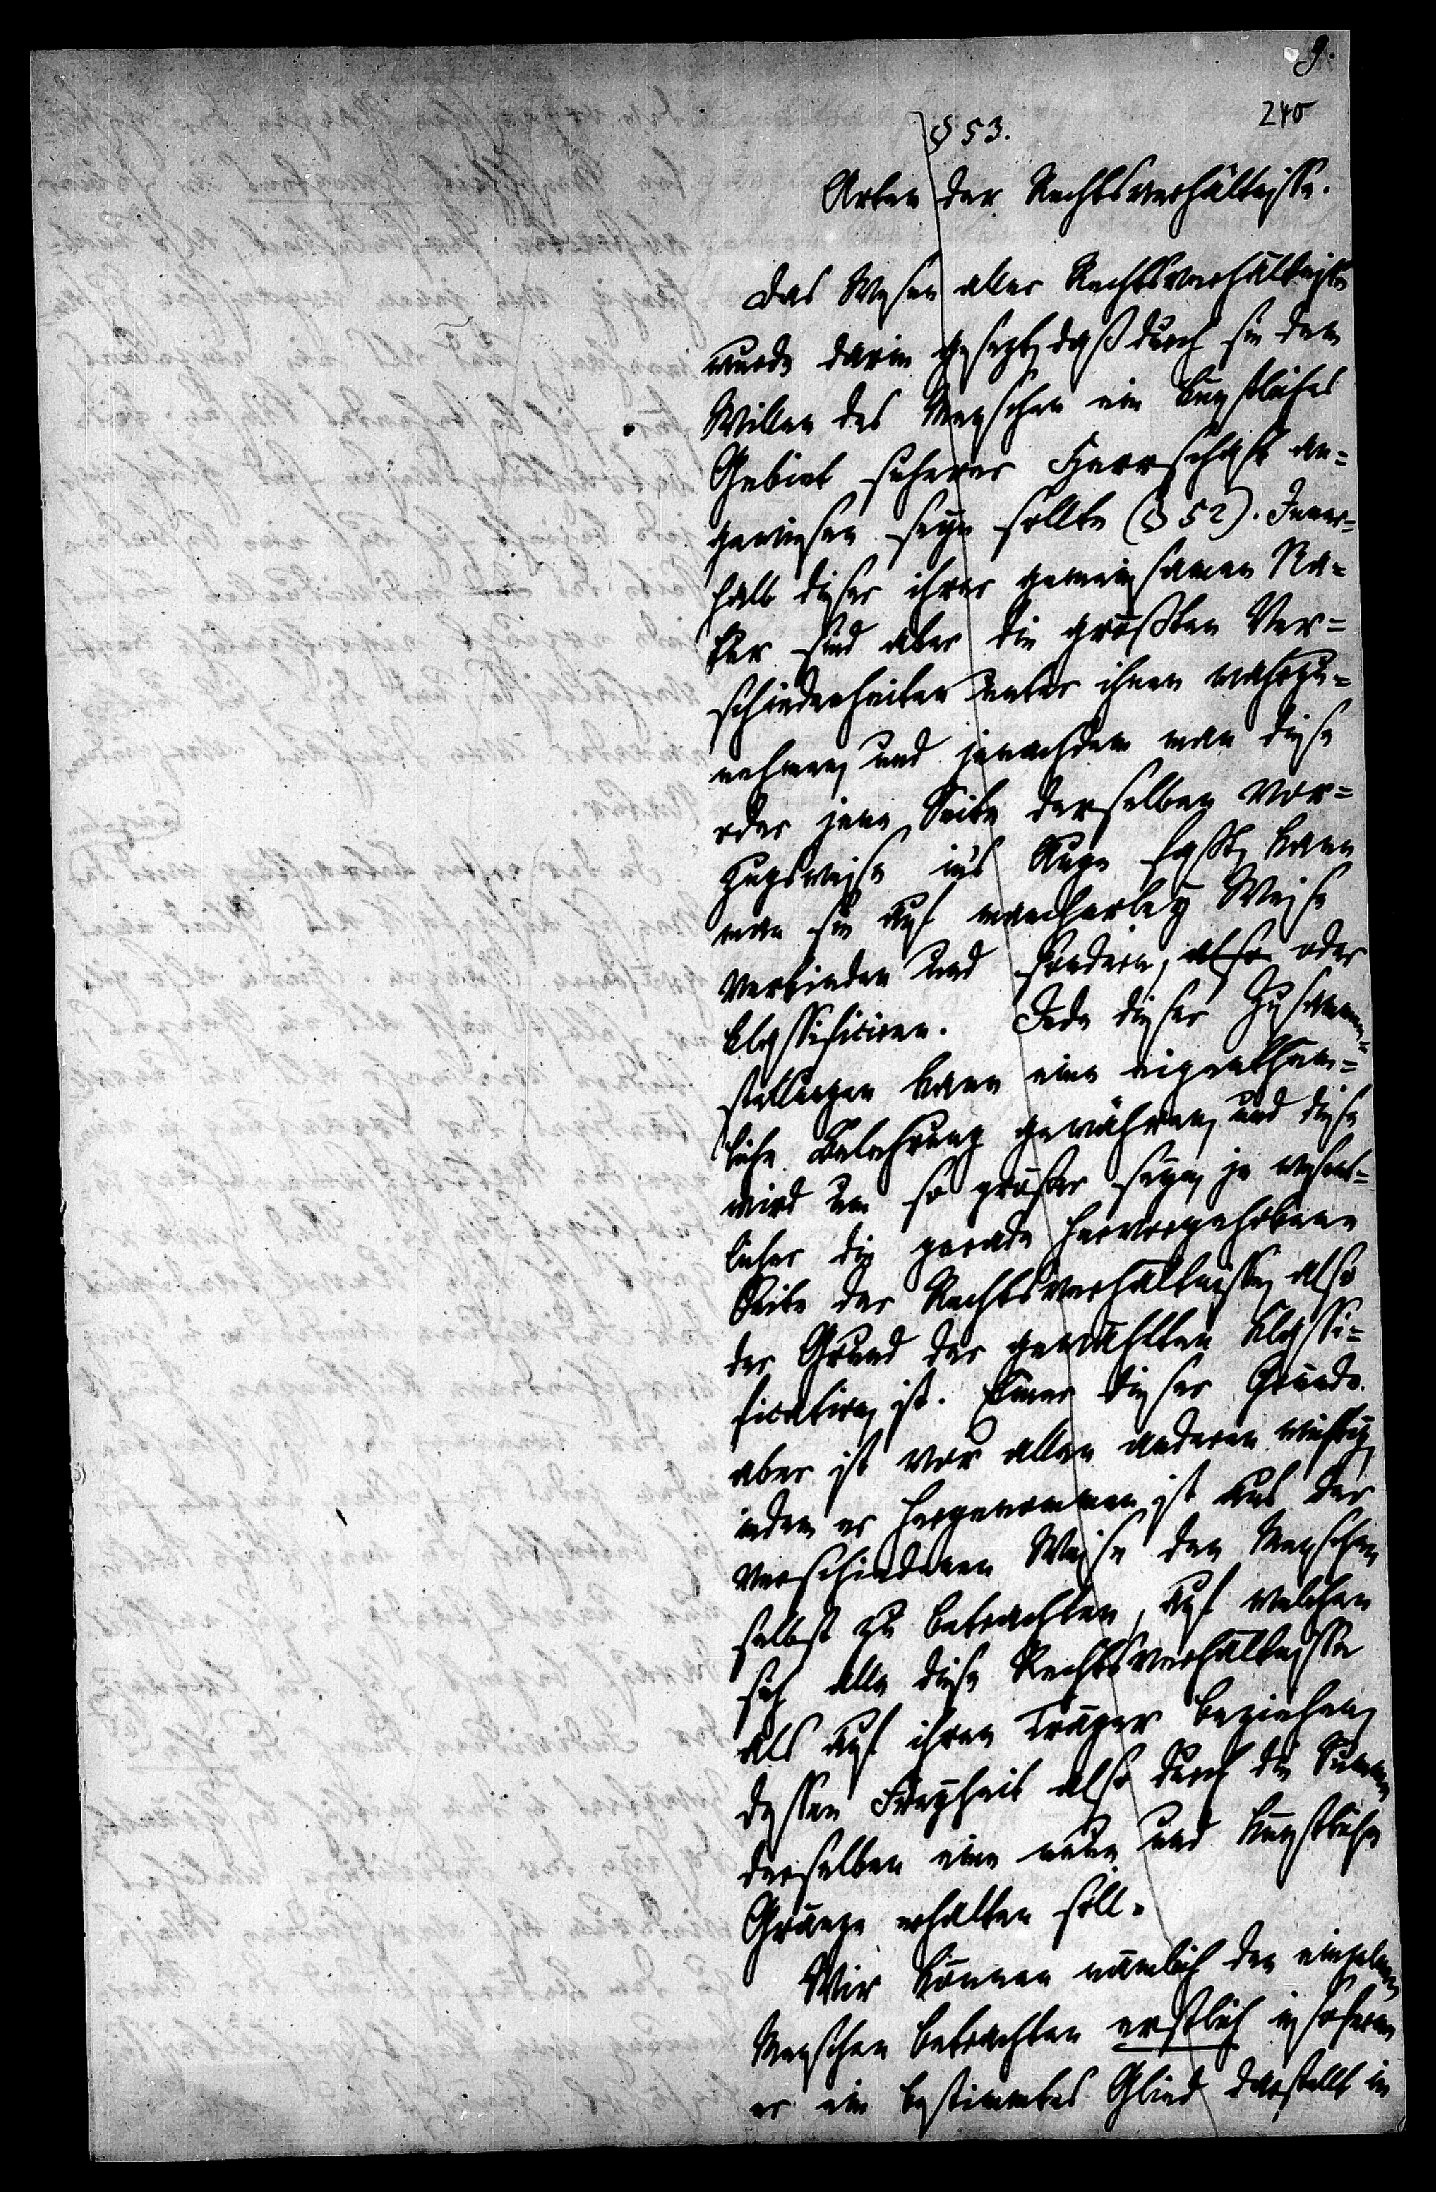 9.
240
§ 53.
Arten der Rechtsverhältnisse.
Das Wesen aller Rechtsverhältnisse
wurde darin gesezt, daß durch sie dem
Willen des Menschen ein künstliches
Gebiet sicherer Herrschaft an=
gewiesen seyn sollte (§ 52). Inner=
halb dieser ihrer gemeinsamen Na=
tur sind aber die größten Ver=
schiedenheiten unter ihnen wahrzu=
nehmen, und jenachdem man diese
oder jene Seite derselben vor=
zugsweise ins Auge faßt, kann
man sie auf mancherley Weise
verbinden und sondern, also oder
classificiren. Jede dieser Zusammen=
stellungen kann eine eigenthüm=
liche Belehrung gewähren, und diese
wird um so größer seyn, je wesent=
licher die gerade hervorgehobene
Seite der Rechtsverhältnisse, also
der Grund der gewählten Classi=
fication, ist. Einer dieser Gründe
aber ist vor allen anderen wichtig,
indem er hergenommen ist aus der
verschiedenen Weise den Menschen
selbst zu betrachten, auf welchen
sich alle diese Rechtsverhältnisse
als auf ihren Träger beziehen,
dessen Freyheit also durch die Summe
derselben eine neue und künstliche
Gränze erhalten soll.
Wir können nämlich den einzelnen
Menschen betrachten erstlich insofern
er ein bestimmtes Glied darstellt in